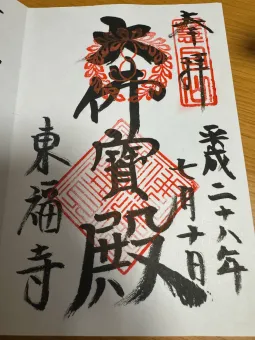 奉拝
平成二十八年
七月十日
大佛寳殿
東福寺